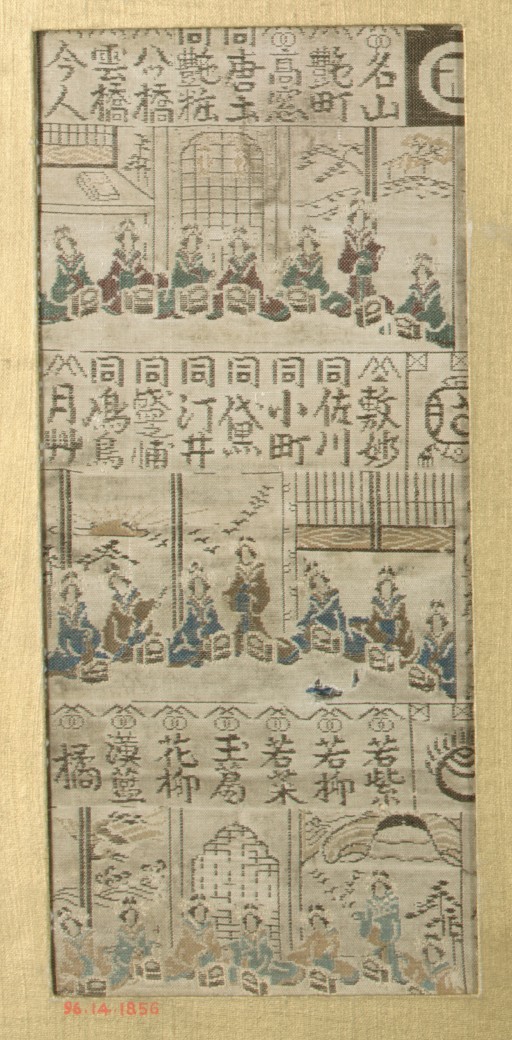 名山
艶町
高窓
同 唐土
同 艶粧
八ツ橋
雲橋
今人
敷妙
同 佐川
同 小町
同 黛
同 汀井
同
同
月
若紫
若柳
若菜
玉葛
花柳
漢籃
橘
96.14.1856